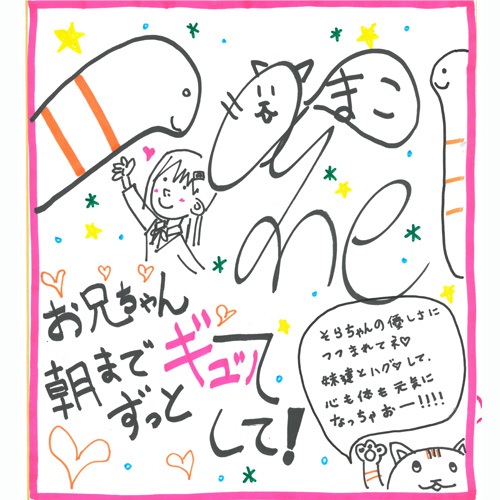 まこ
お兄ちゃん
朝まで
ずっと
ギュッて
して!
そらちゃんの優しさに
つつまれてネ♡
妹達とハグ〜して、
心も体も元気に
なっちゃおー!!!!